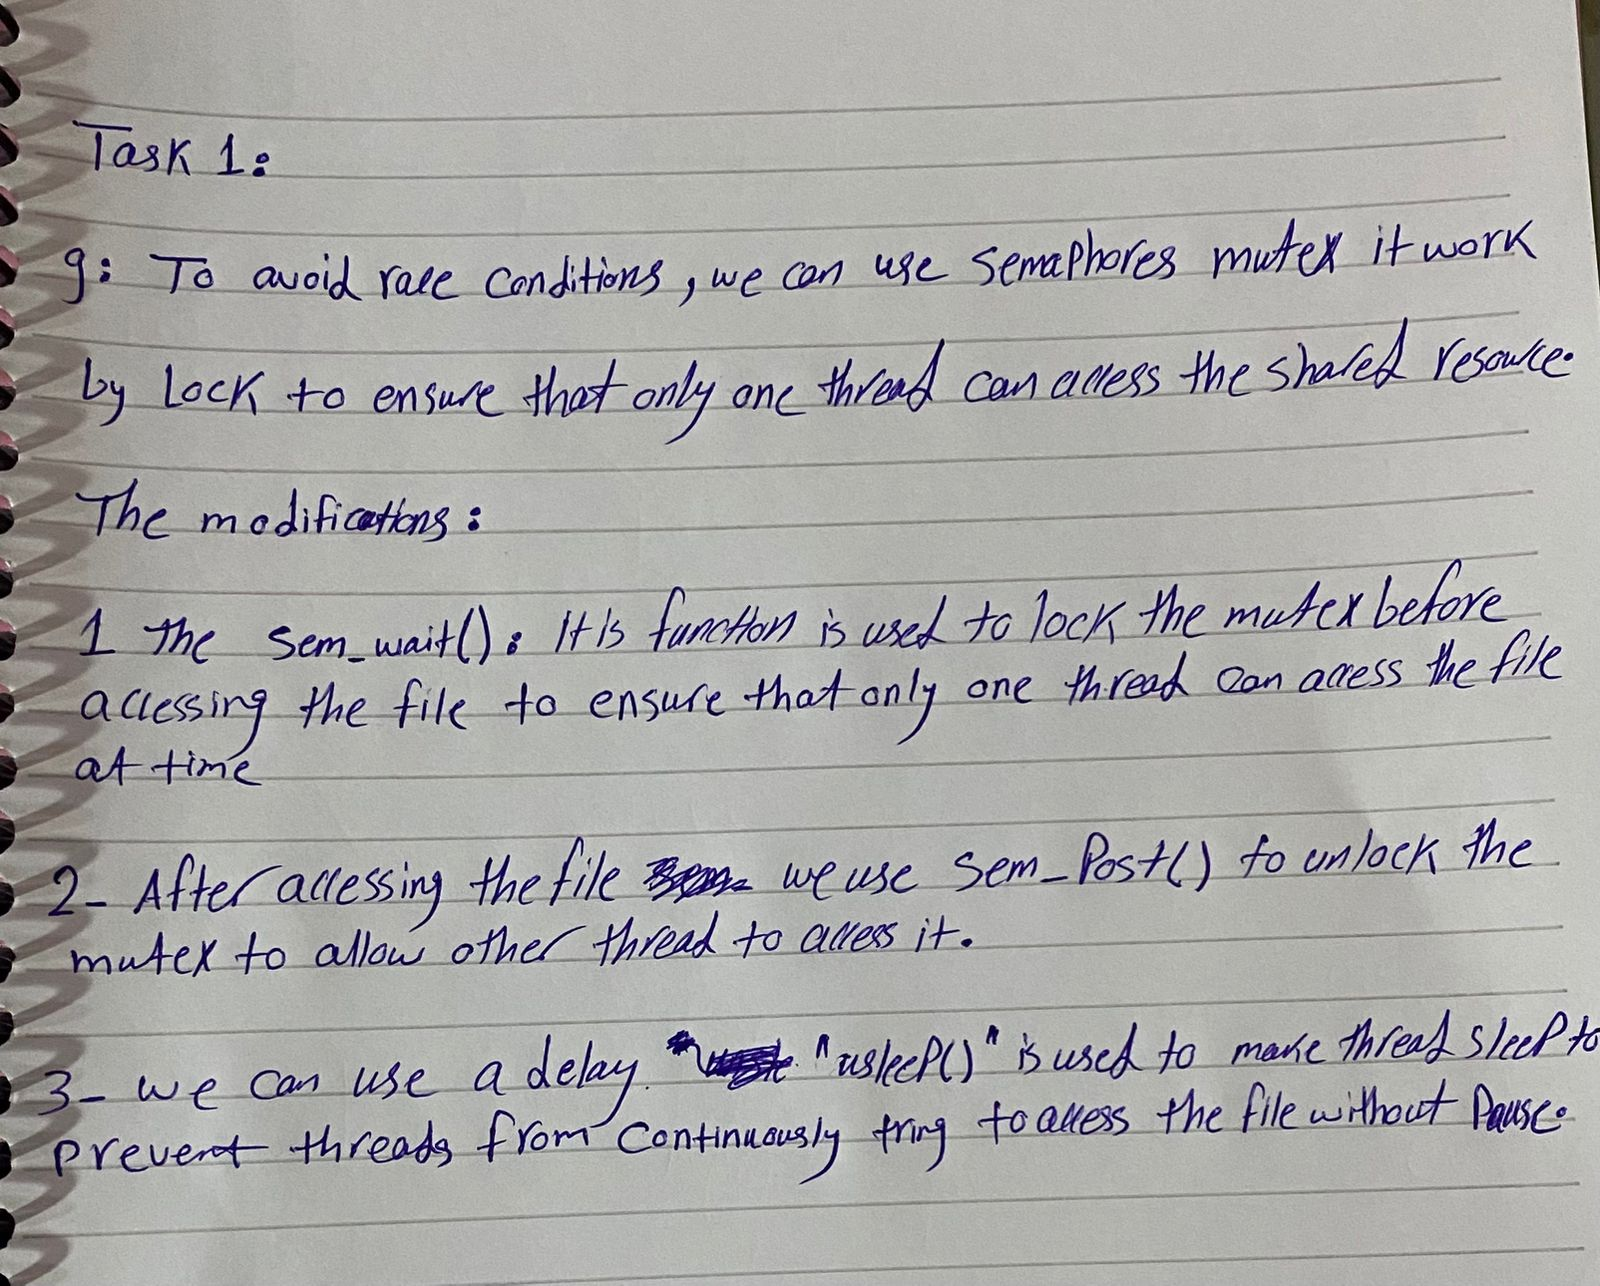 Task 1:
g: To avoid race conditions, we can use semaphores mutex it work
by Lock to ensure that only one thread can access the shared resource.
The modifications:
1 the sem_wait(): It is function is used to lock the mutex before
accessing the file to ensure that only one thread can access the file
at time
2- After accessing the file we use sem_Post() to unlock the
mutex to allow other thread to access it.
3- we can use a delay. "usleeP()" is used to make thread sleep to
prevent threads from continuously tring to access the file without Pause.